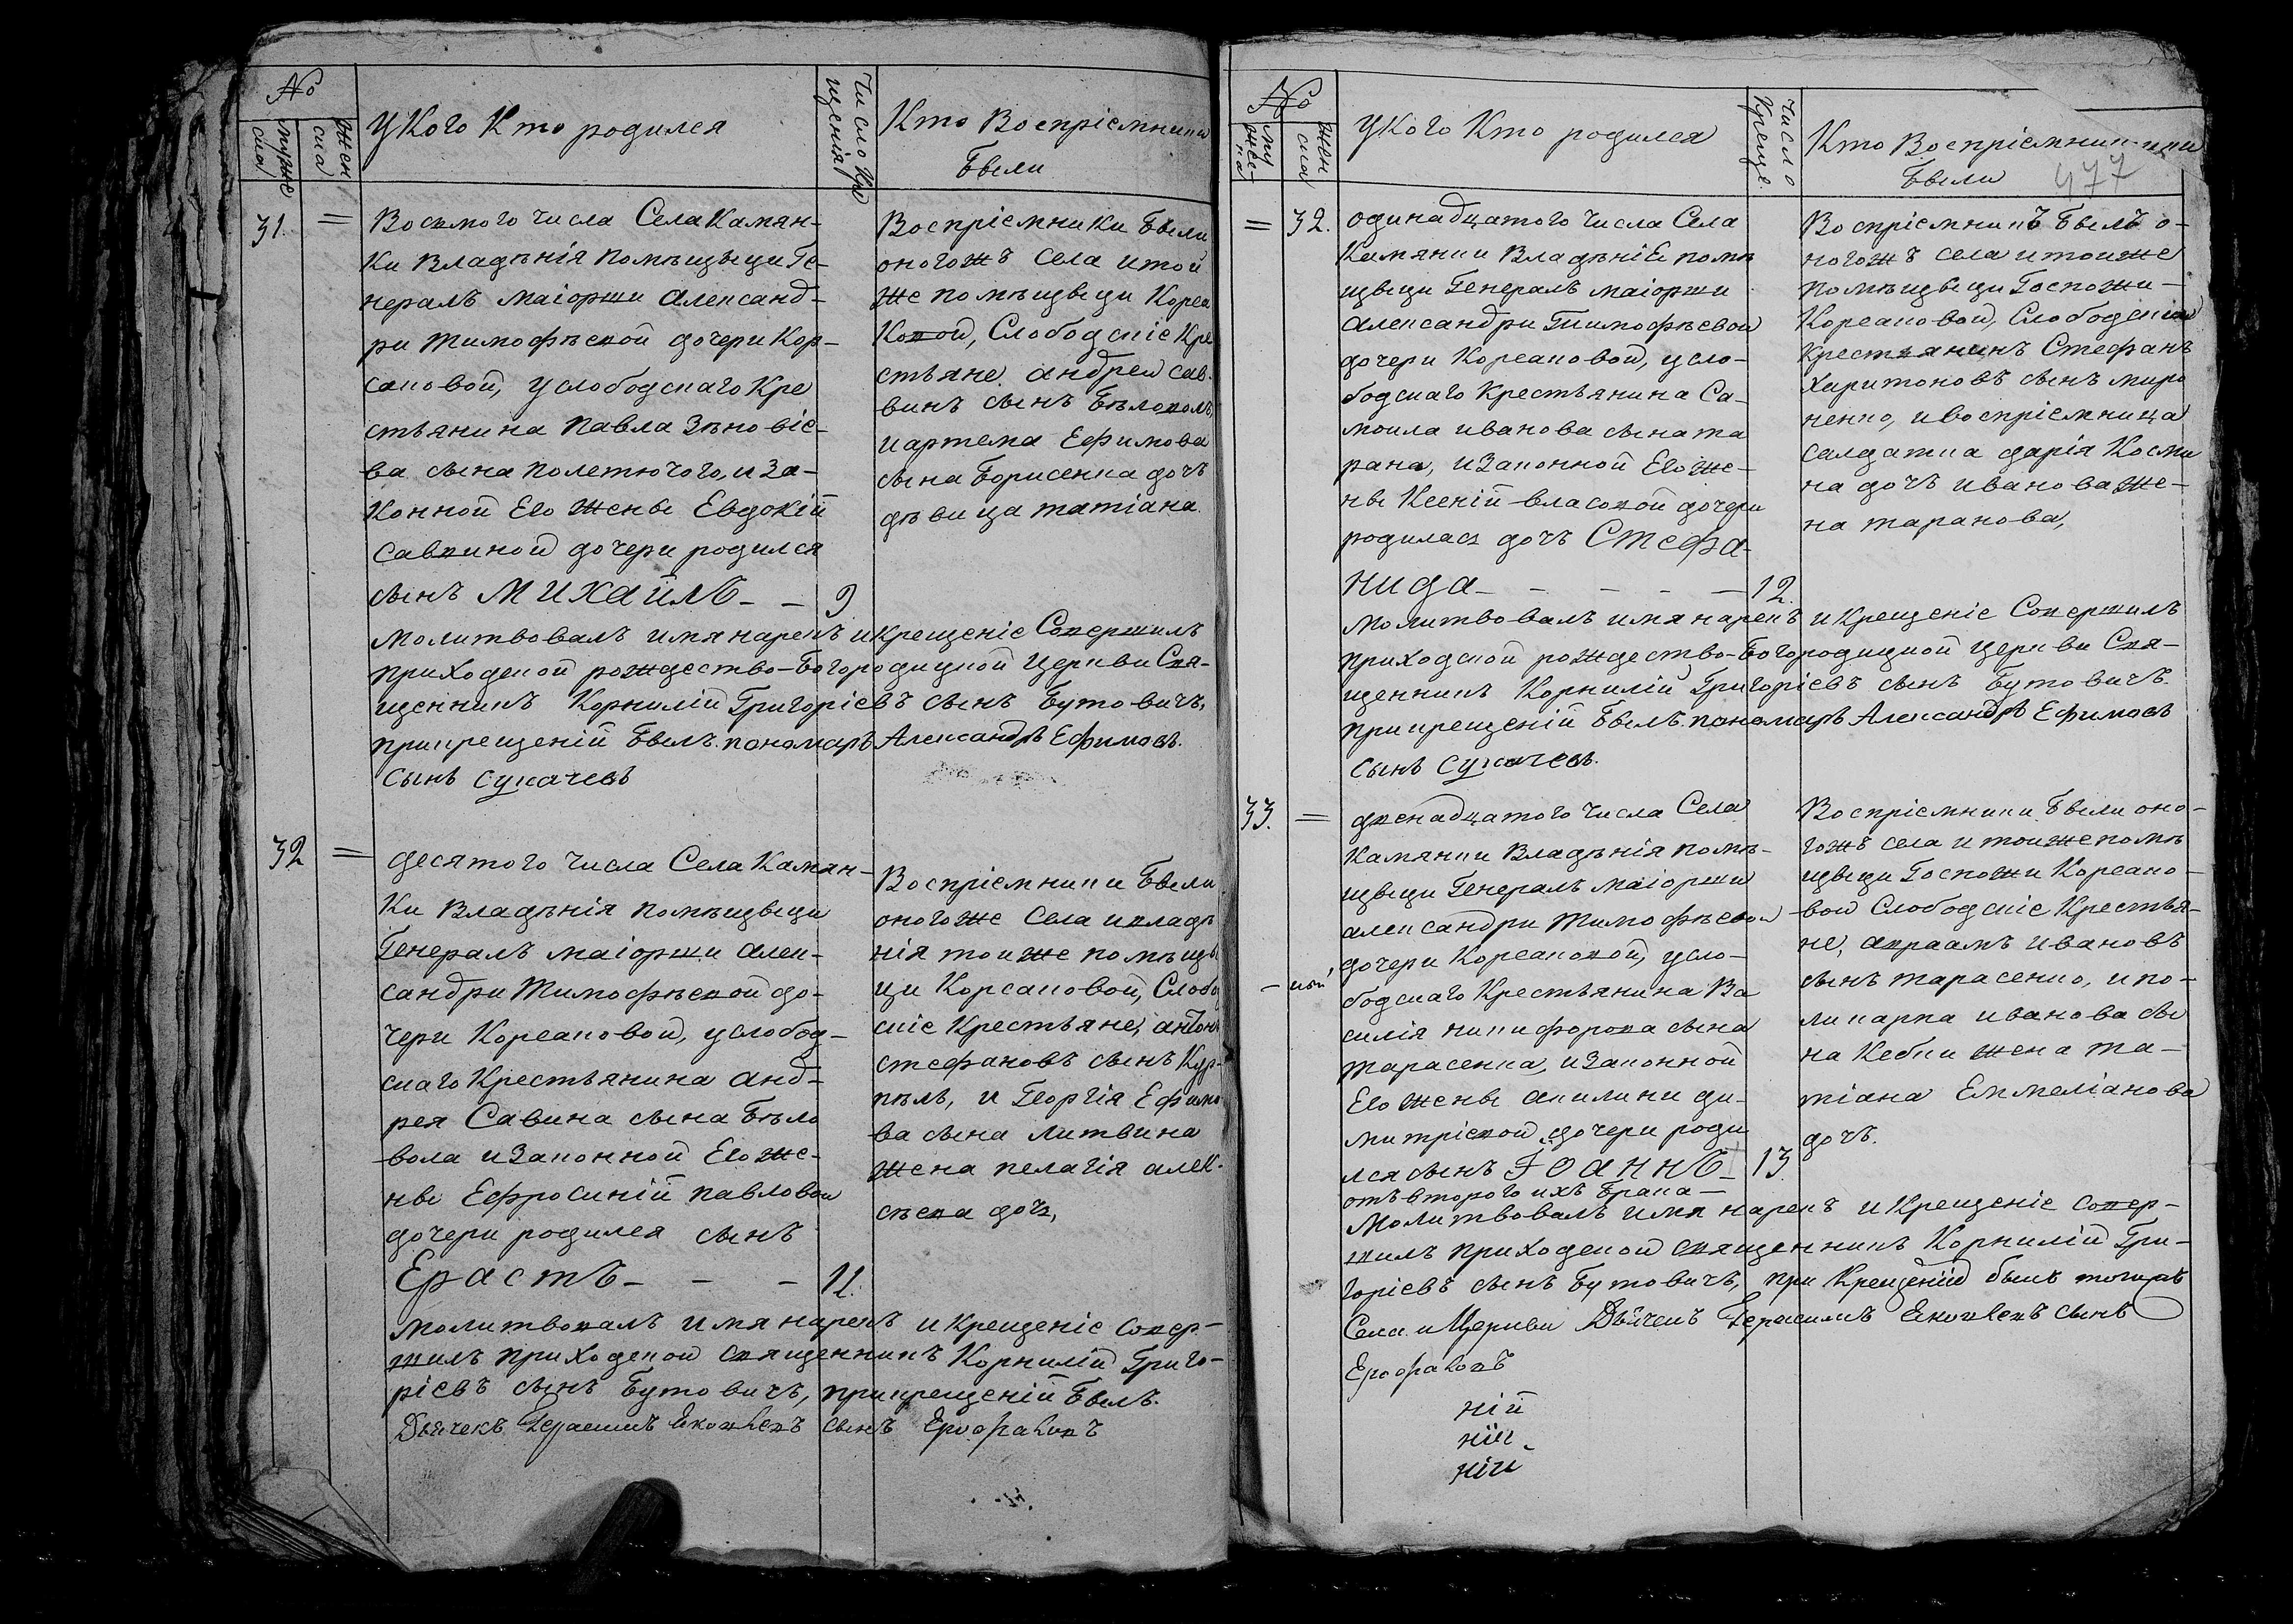 №
мужеска
женска
У Кого Кто родился
Число Крещенія
Кто Воспріемники
Были
31. =
Восьмого Числа Села Камян-
ки Владѣнія помѣщьци Ге-
нералъ маіорши Александ-
ри Тимофѣевой дочери Кор-
саковой, у слободскаго Кре
стьянина Павла Зѣновіе-
ва сына Полетючого, и За-
конной Его Жены Евдокіи
Саввиной дочери родился
сынъ МИХАИЛЪ - - 9
Воспріемники были
оногожъ села и той
же помѣщьци Корса
ковой, Слободскіе Кре
стьяне Андреи Сав-
винъ сынъ Бѣловолъ,
и Артема Ефимова
сына Борисенка дочъ
дѣвица Татіана.
Молитвовалъ имя нарекъ и Крещеніе Совершилъ
приходской рождество-Богородицкой Церкви Свя-
щенникъ Корнилій Григоріевъ сынъ Бутовичъ,
при крещеніи былъ пономаръ Александръ Ефимовъ
Сынъ Сукачевъ
32 =
десятого Числа Села Камян-
ки Владѣнія помѣщьци
Генералъ маіорши Алек-
сандри Тимофѣевой до-
чери Корсаковой, у слобод-
скаго Крестьянина Анд-
рея Савина сына Бѣло
вола и Законной Его Же-
ны Ефросиніи Павловой
дочери родился сынъ
Ерастъ - - - 11.
Воспріемники были
оногоже села и владѣ
нія тоиже помѣщь
ци Корсаковой, Слобод
скіе Крестьяне, Антонъ
Стефановъ сынъ Кур-
, и Георгія Ефимо
ва сына Литвина
жена Пелагія Алек-
сѣева дочъ,
Молитвовалъ имя нарекъ и Крещеніе Совер-
шилъ приходской священникъ Корнилій Григо-
ріевъ сынъ Бутовичъ, при крещеніи былъ.
Дьячекъ Герасимъ сынъ
№
мужеска
женска
У Кого Кто родился
Число Креще.
Кто Воспріемники
Были
477
= 32.
одинадцатого Числа Села
Камянки Владѣніе помѣ
щьци Генералъ маіорши
Александри Тимофѣевой
дочери Корсаковой, у сло-
бодскаго Крестьянина Са-
моила Иванова сына Та
рана, и Законной Его Же-
ны Ксеніи Власовой дочери
родилась дочъ Стефа-
нида - - - - - 12.
Воспріемникъ былъ о-
ногожъ села и тоиже
помѣщьци Госпожи
Корсаковой, Слободскій
Крестьянинъ Стефанъ
Харитоновъ сынъ Миро
ненко, и воспріемница
салдатка Дарія Косми
на дочъ Иванова же-
на Таранова,
Молитвовалъ имя нарекъ и Крещеніе Совершилъ
приходской рождество-Богородицкой Церкви Свя-
щенникъ Корнилій Григоріевъ сынъ Бутовичъ.
при крещеніи былъ пономаръ Александръ Ефимовъ
Сынъ Сукачевъ.
33. =
двенадцатого Числа Села
Камянки Владѣнія помѣ-
щьци Генералъ маіорши
Александри Тимофѣевой
дочери Корсаковой, у сло-
бодскаго Крестьянина Ва
силія Никифорова сына
Тарасенка, и Законной
Его Жены Акилини Ди-
митріевой дочери роди
лся сынъ ІОАННЪ - 13.
отъ второго ихъ брака -
Воспріемники были оно-
гожъ села и тоиже помѣ
щьци Госпожи Корсако-
вой Слободскіе Крестья-
не, Авраамъ Ивановъ
сынъ Тарасенко, и По-
ликарпа Иванова сы
на Кебки жена Та-
тіана Еммеліанова
дочъ.
Молитвовалъ имя нарекъ и Крещеніе совер-
шилъ приходской священникъ Корнилій Гри-
горіевъ сынъ Бутовичъ, при Крещеніи былъ
Села и Церкви Дьячекъ Герасимъ сынъ
ній
ній
ній